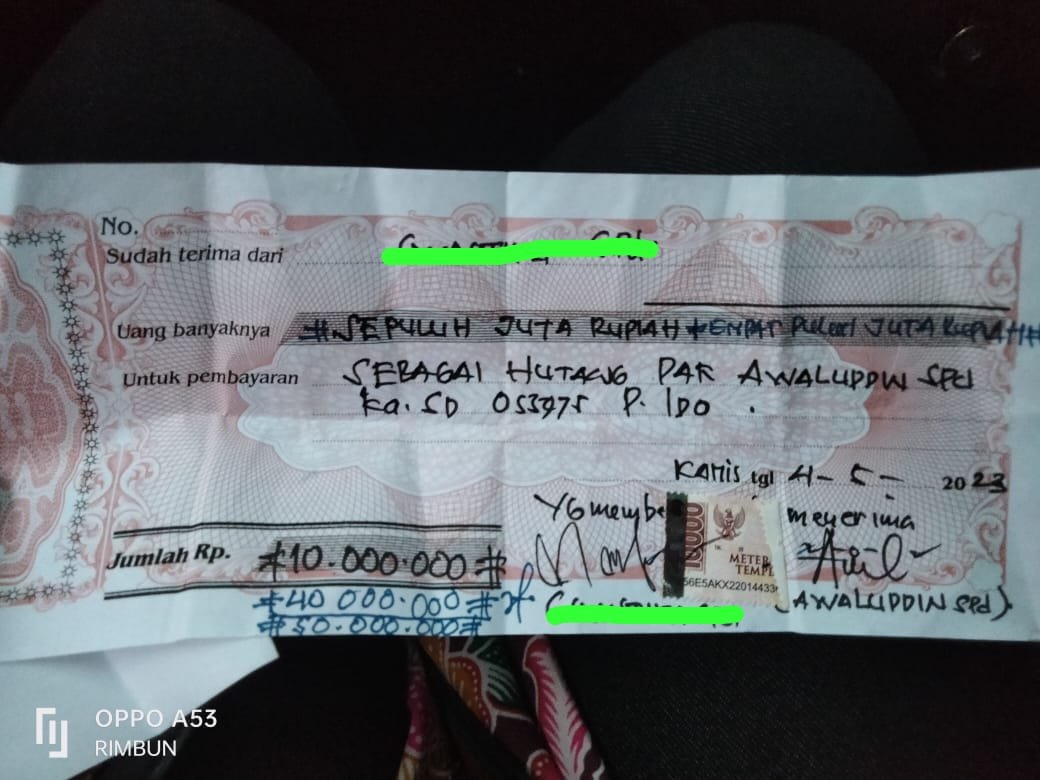 No.
Sudah terima dari
Uang banyaknya # SEPULUH JUTA RUPIAH + EMPAT PULUH JUTA RUPIAH #
Untuk pembayaran SEBAGAI HUTANG PAK AWALUDDIN SPd
Ka. SD 053975 P. IDO .
KAMIS tgl 4 - 5 - 2023
Yg membe menerima
Jumlah Rp. # 10.000.000 #
1000
METER
TEMPEL
56E5AKX22014433
# 40 000.000 #
# 50.000.000 #
(AWALUDDIN SPd)
OPPO A53
RIMBUN